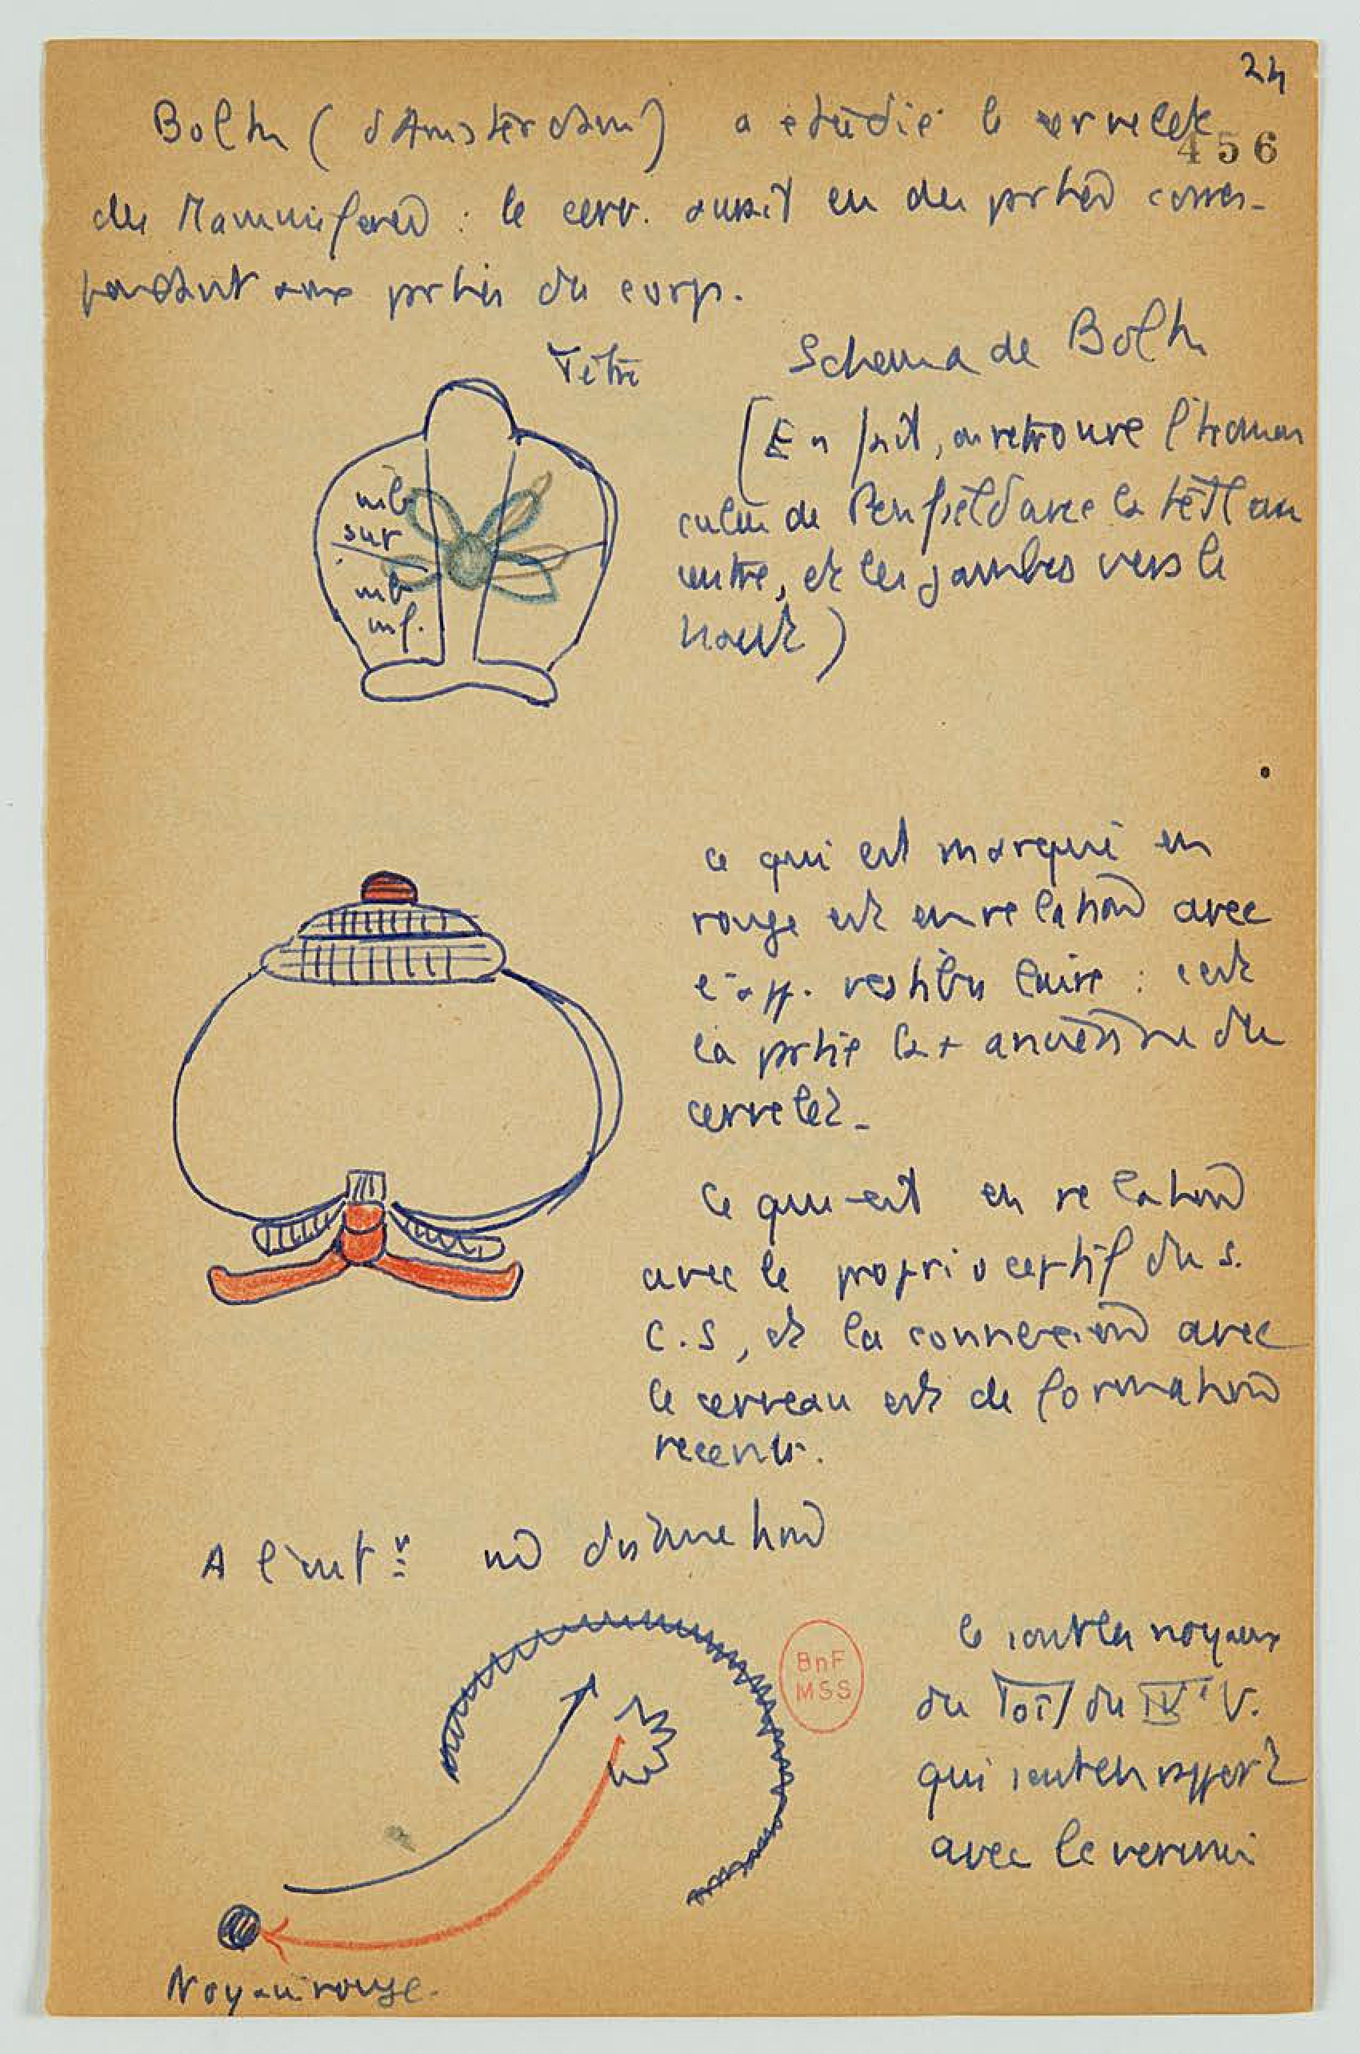 24
456
Bolk (d'Amsterdam) a étudié le cervelet
des Mammifères : le cerv. aussi en des parties corres-
pondant aux parties du corps.
Tête
Schema de Bolk
[En fait, on retrouve l'homun
culus de Penfield avec la tête au
centre, et les jambes vers le
haut)
mb
sup
mb
inf.
ce qui est marqué en
rouge est en relation avec
l'app. vestibulaire : c'est
la partie la + ancienne du
cervelet_
Ce qui est en relation
avec le proprioceptif du s.
C.S, et la connexion avec
le cerveau est de formation
recente.
A l'intr : distinction
Ce sont les noyaux
du Toit du IVe V.
qui sont en rapport
avec le vermis
BnF
MSS
Noyau rouge.